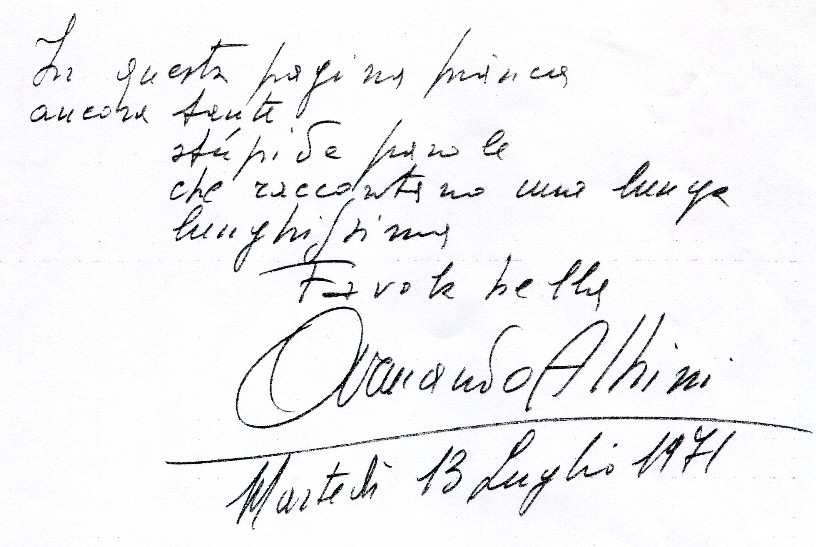 In questa pagina bianca
ancora tante
stupide parole
che raccontano una lunga
lunghissima
Favola bella
Armando Albini
Martedì 13 Luglio 1971